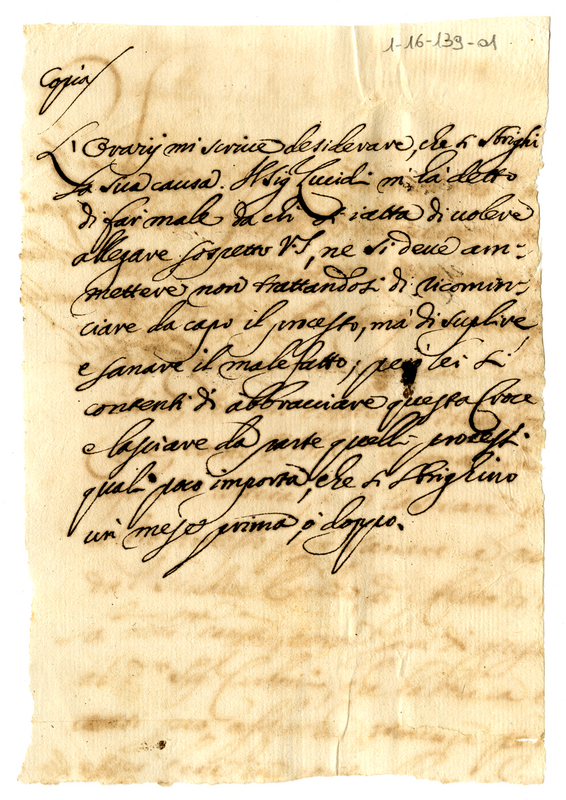 1-16-139-01
Copia
L'Orarij mi scrive desiderare, che si sbrighi
la sua causa. Il Sig Lucidi m'ha detto
di far male da chi si tratta di volere
allegare sospetto VS, ne si deve am-
mettere non trattandosi di ricomin-
ciare da capo il processo, ma di suplire
e sanare il male fatto; però lei si
contenti di abbracciare questa Croce
e lasciare da parte quelli processi
quali poco importa, che si sbrighino
un mese prima, ò doppo.